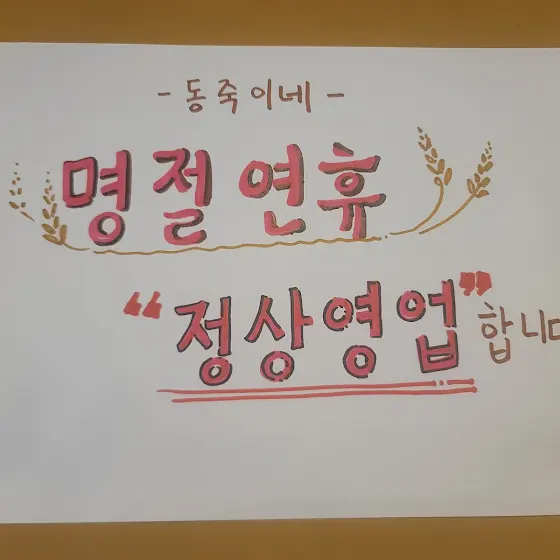 - 동죽이네 -
명절 연휴
"정상영업" 합니다